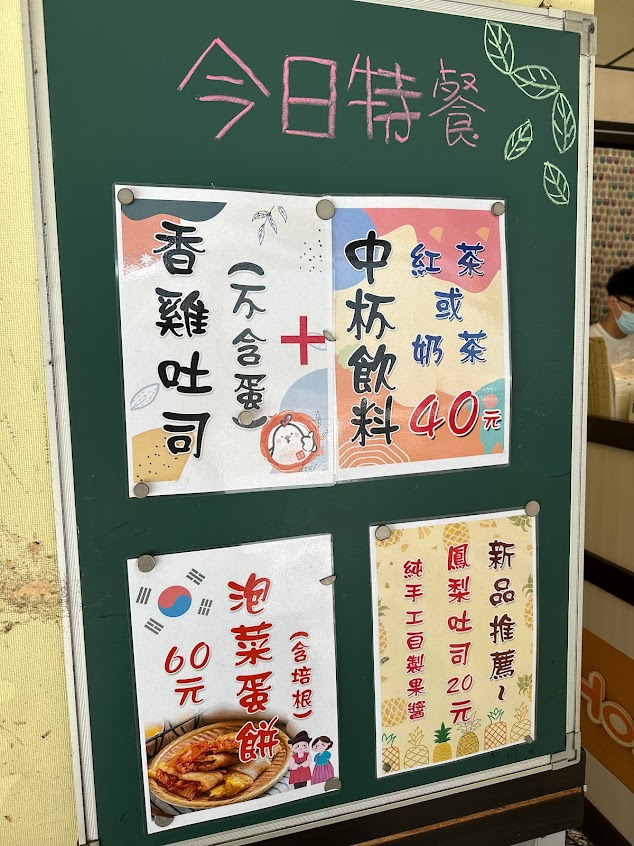 今日特餐
香雞吐司
(不含蛋)
+
中杯飲料
紅茶
或
奶茶
40元
泡菜蛋餅
(含培根)
60
元
新品推薦~
鳳梨吐司20元
純手工自製果醬
Ho